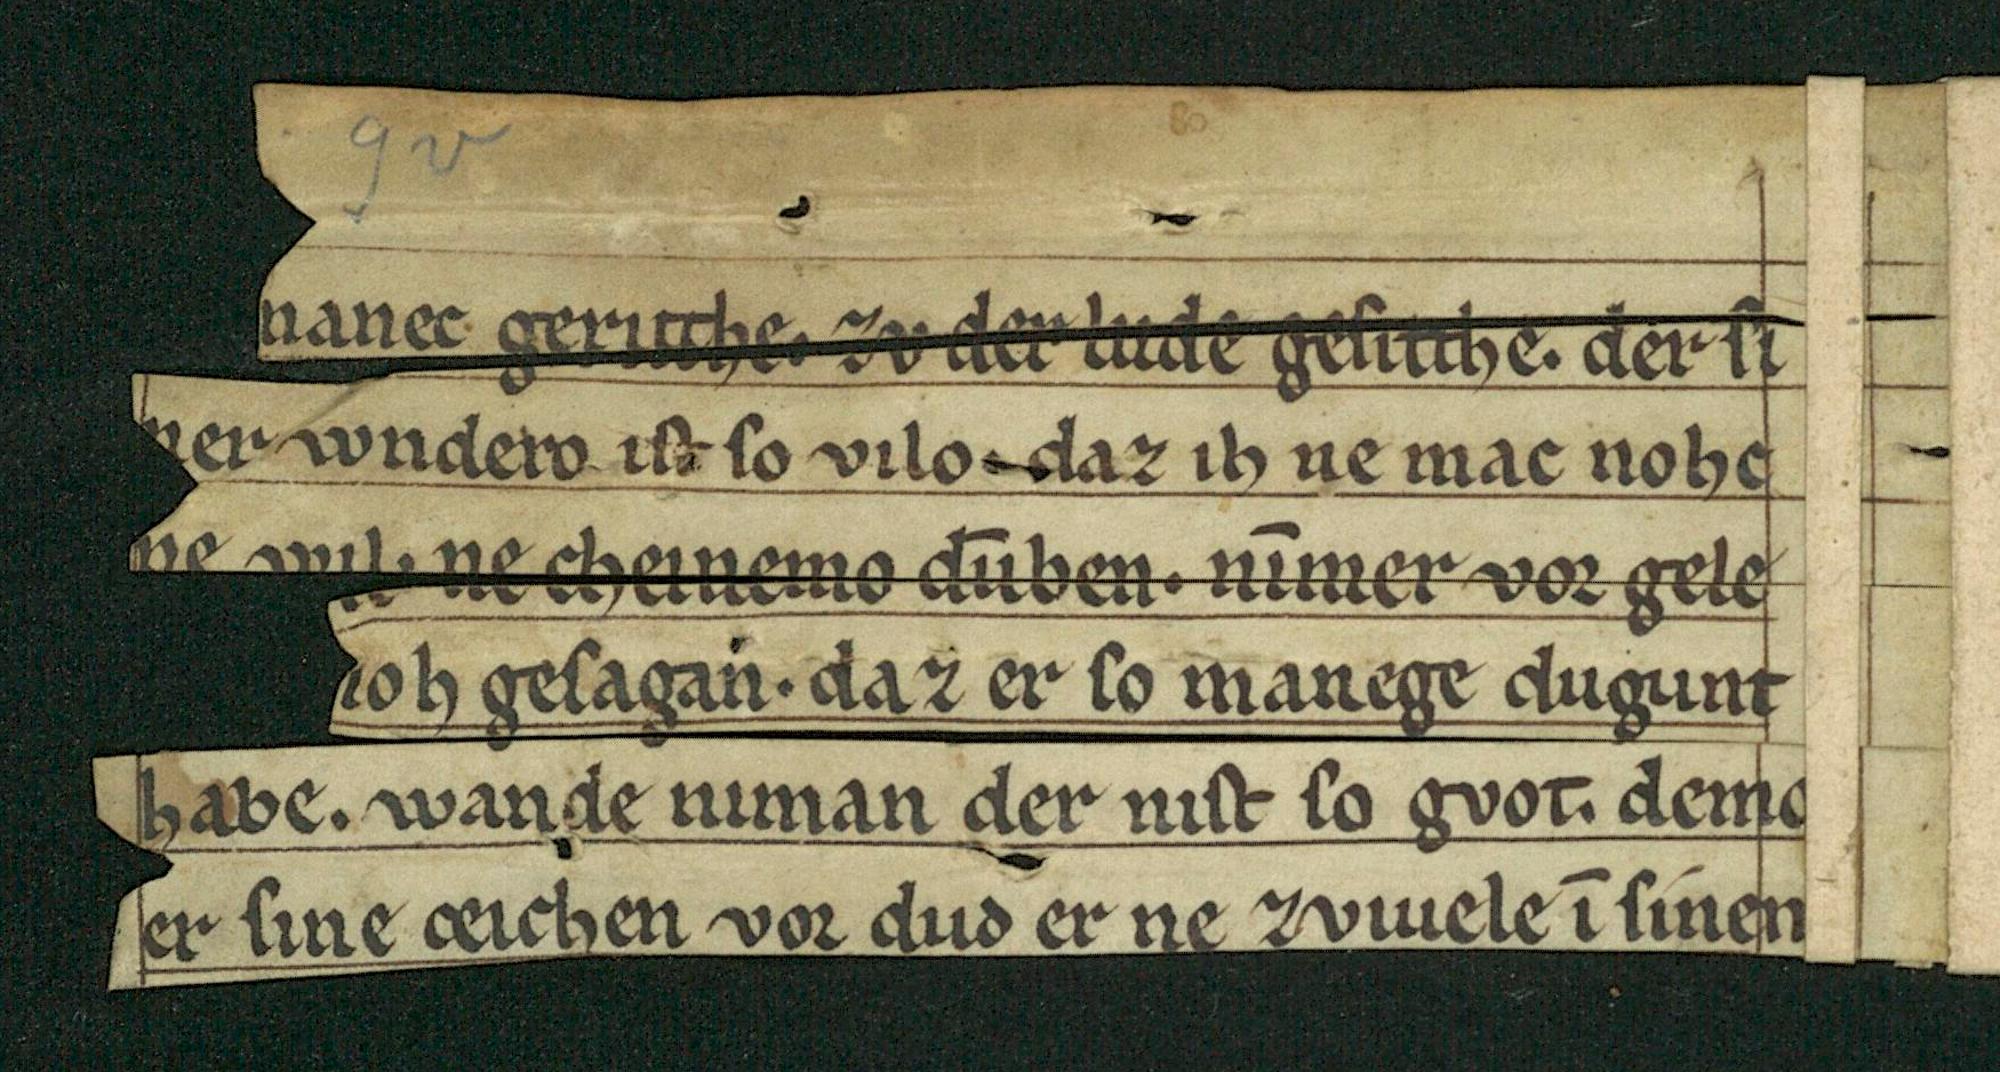 9v
nanec geritthe. zv der lude gesitthe. der si
ner wndero ist so vilo. daz ih ne mac nohc
ne wil. ne cheinemo dūben. nīmer vor gele
ioh gesagan. daz er so manege dugunt
habe. wande niman der nist so gvot. demo
er sine ceichen vor duo er ne zviuele ī sinen